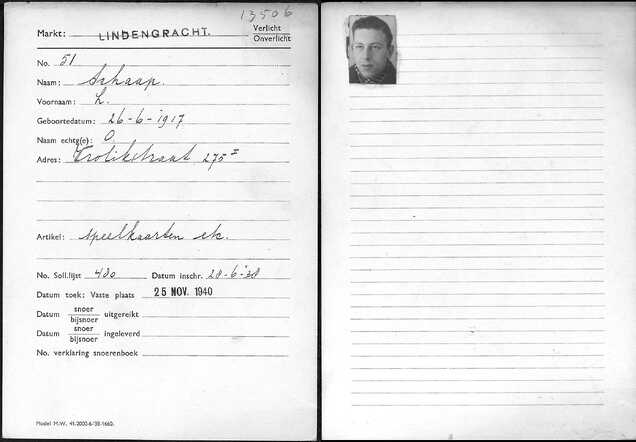 13506
Markt: LINDENGRACHT. Verlicht
Onverlicht
No. 51
Naam: Schaap.
Voornaam: L.
Geboortedatum: 26-6-1917
Naam echtg(e): O.
Adres: Krolikstraat 275 I
Artikel: speelkaarten etc.
No. Soll.lijst 480 Datum inschr. 28-6-'38
Datum toek: Vaste plaats 25 NOV. 1940
Datum snoer
bijsnoer uitgereikt
Datum snoer
bijsnoer ingeleverd
No. verklaring snoerenboek
Model M.W. 41.2000-6/'38-1660.